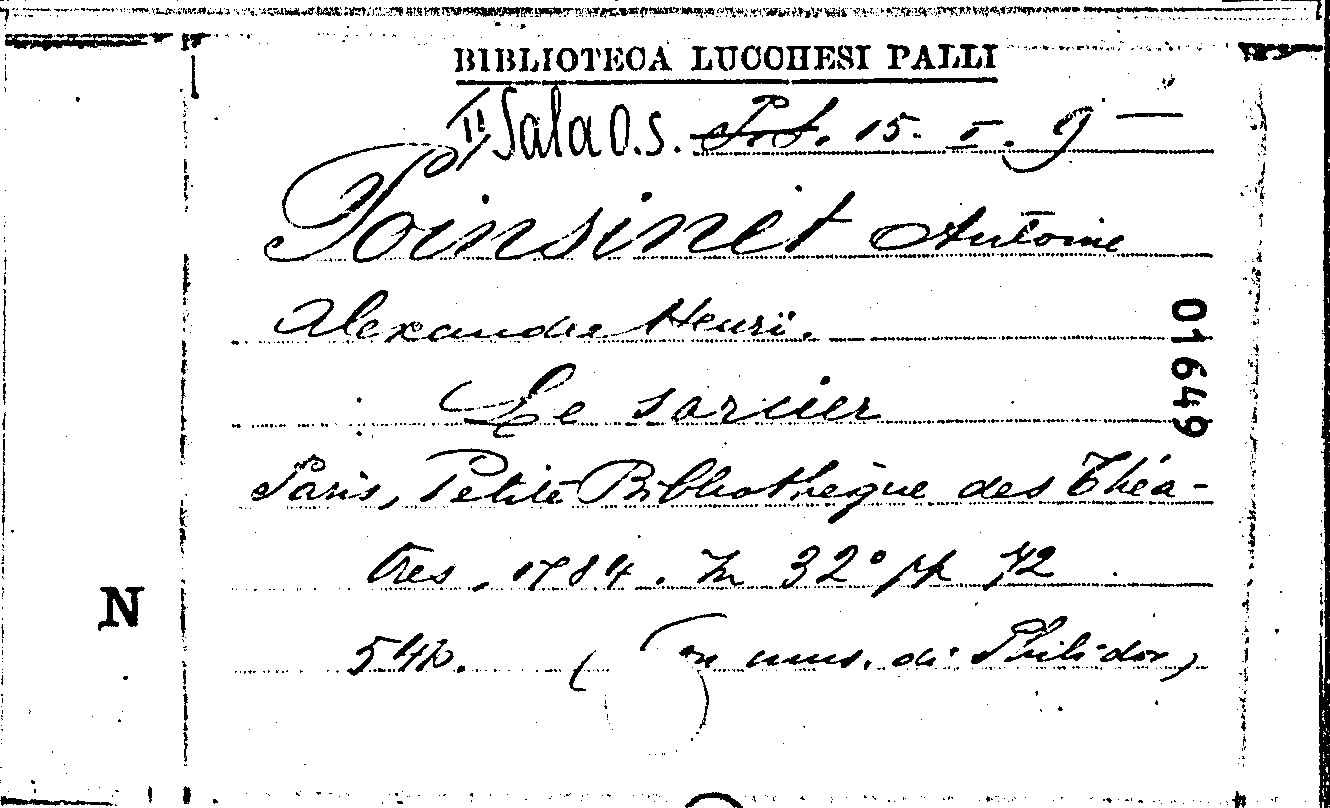 BIBLIOTECA LUCCHESI PALLI
II Sala O.S. 15. I. 9
Poinsinet Antoine
Alexandre Henri.
Le sorcier
Paris, Petite Bibliothèque des Théa-
tres, 1784. In 32° pp 72
(Con mus. di Philidor)
N
01649